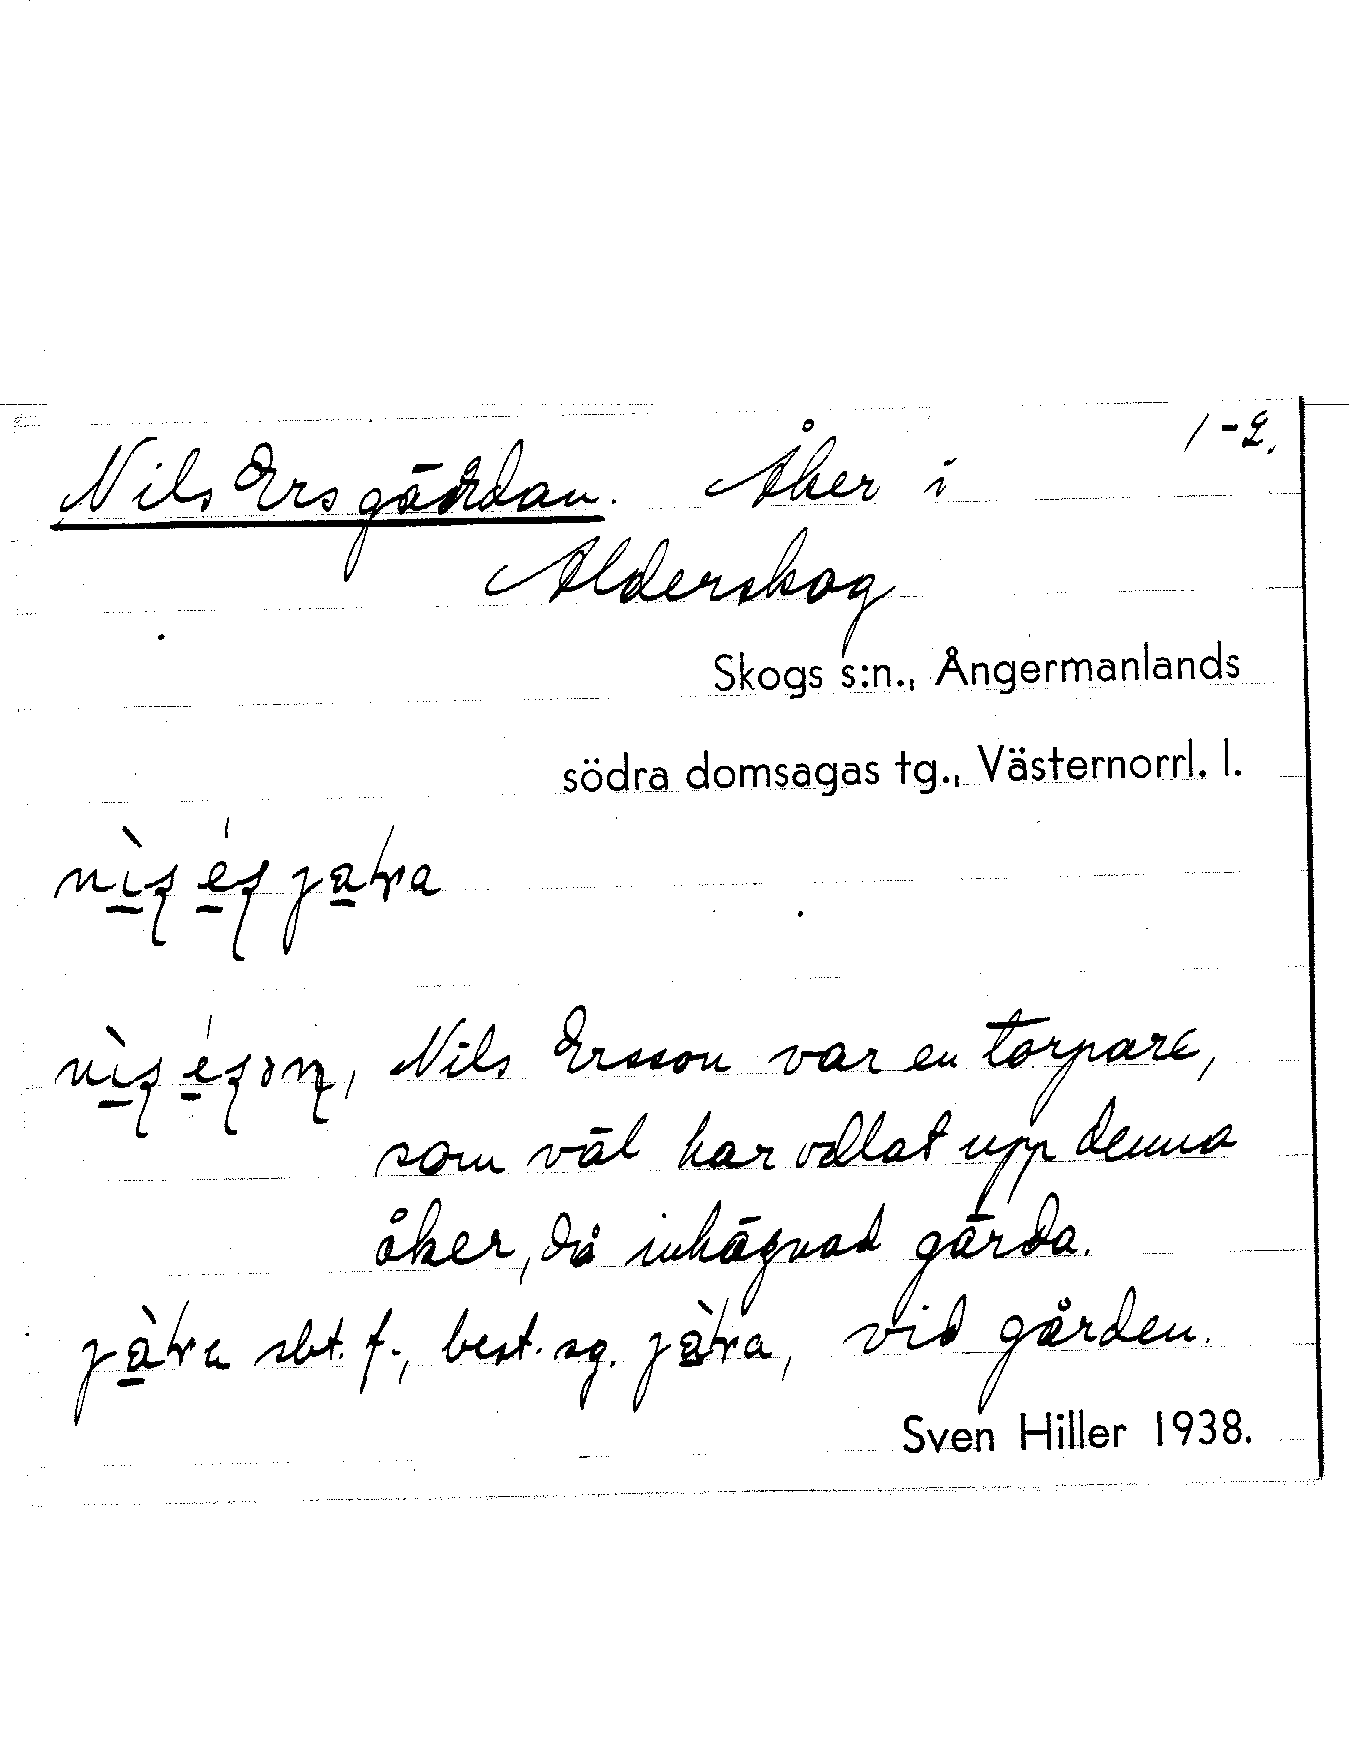 1-2.
Nils Ersgärdan. Åker i
Alderskog
Skogs s:n., Ångermanlands
södra domsagas tg., Västernorrl. l.
Nils Ersson var en torpare,
som väl har odlat upp denna
åker, då inhägnad gärda.
sbt. f., best. sg. vid gården.
Sven Hiller 1938.